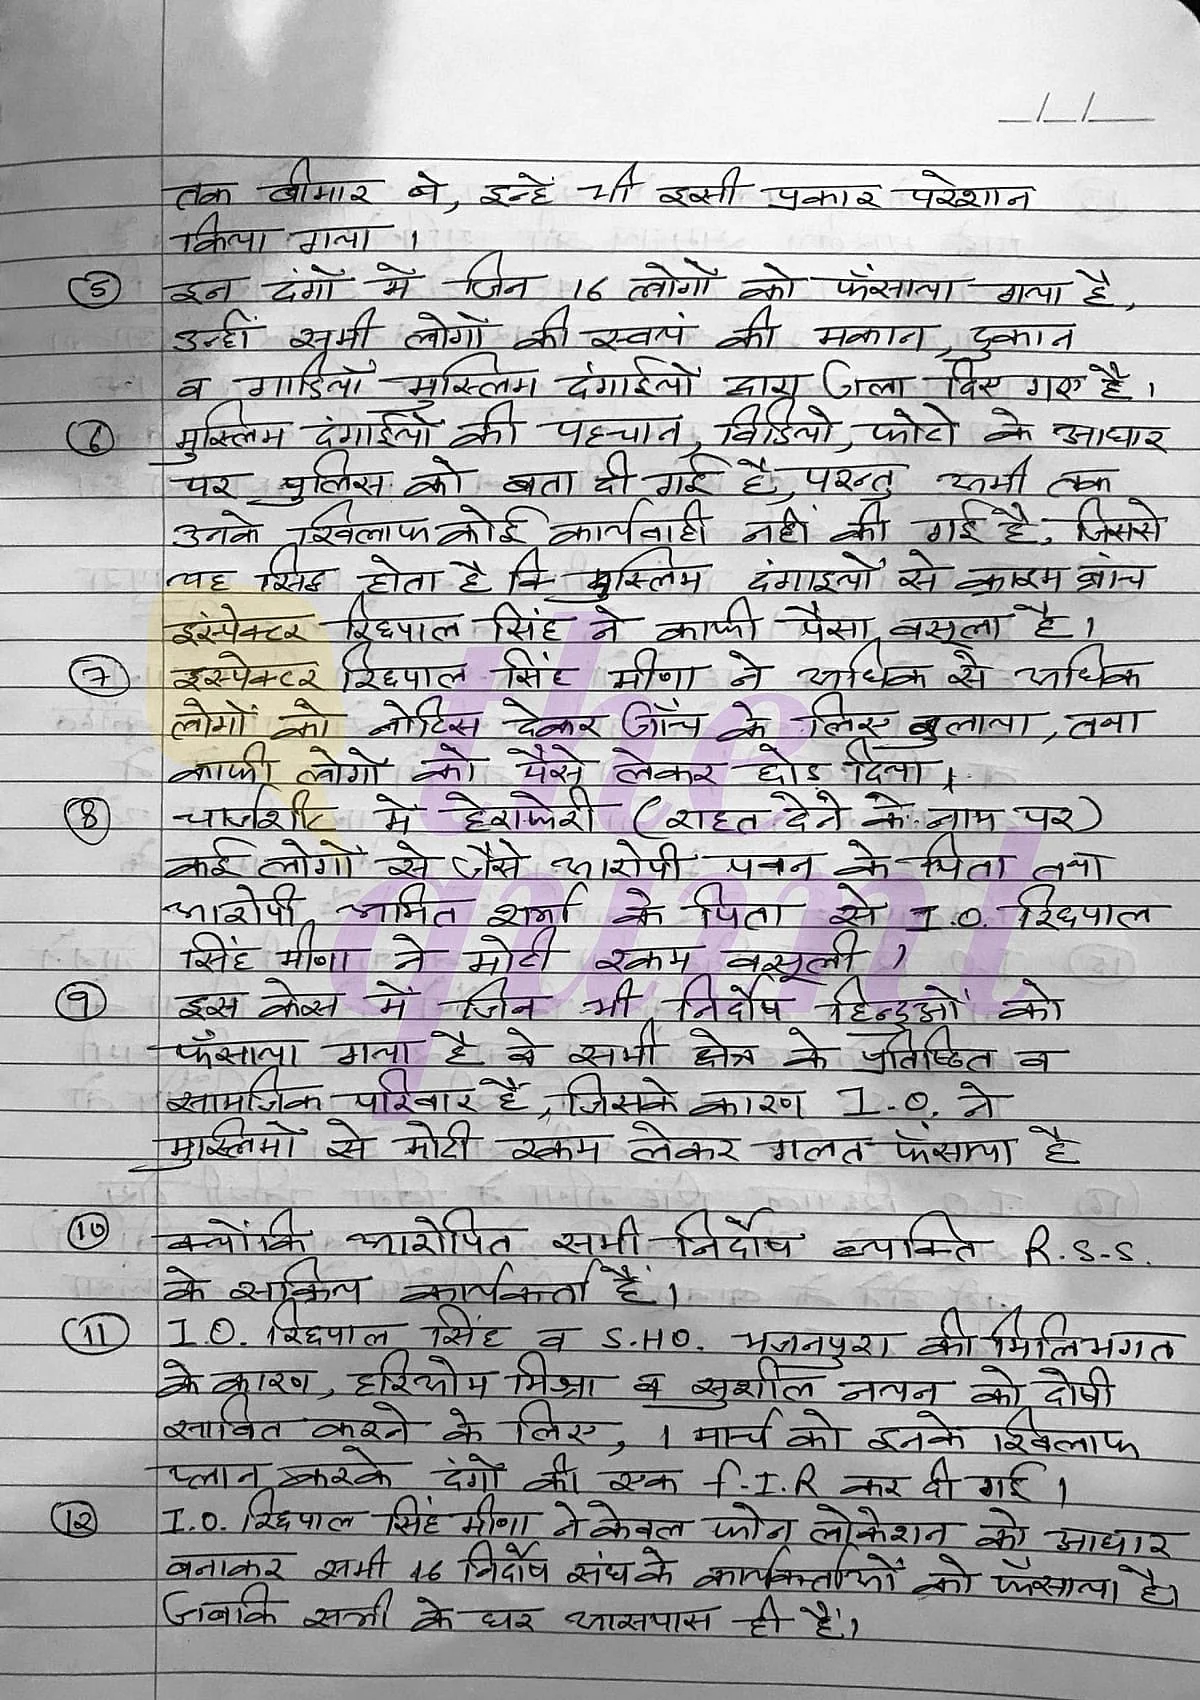 _/_/__
तक बीमार थे, इन्हें भी इसी प्रकार परेशान
किया गया ।
5 इन दंगों में जिन 16 लोगों को फँसाया गया है,
उन्हीं सभी लोगों की स्वयं की मकान, दुकान
व गाडियाँ मुस्लिम दंगाईयों द्वारा जला दिए गए है ।
6 मुस्लिम दंगाईयों की पहचान, विडियो, फोटो के आधार
पर पुलिस को बता दी गई है, परन्तु अभी तक
उनके खिलाफ कोई कार्यवाही नहीं की गई है, जिससे
यह सिद्ध होता है कि मुस्लिम दंगाइयों से क्राइम ब्रांच
इंस्पेक्टर रिछपाल सिंह ने काफी पैसा वसूला है ।
7 इंस्पेक्टर रिछपाल सिंह मीणा ने अधिक से अधिक
लोगों को नोटिस देकर जाँच के लिए बुलाया, तथा
काफी लोगों को पैसे लेकर छोड़ दिया ।
8 चार्जशीट में हेराफेरी (राहत देने के नाम पर)
कई लोगों से जैसे आरोपी पवन के पिता तथा
आरोपी अमित शर्मा के पिता से I.O. रिछपाल
सिंह मीणा ने मोटी रकम वसूली ।
9 इस केस में जिन भी निर्दोष हिन्दुओं को
फँसाया गया है वे सभी क्षेत्र के प्रतिष्ठित व
सामाजिक परिवार हैं, जिसके कारण I.O. ने
मुस्लिमों से मोटी रकम लेकर गलत फँसाया है
10 क्योंकि आरोपित सभी निर्दोष व्यक्ति R.S.S.
के सक्रिय कार्यकर्ता हैं ।
11 I.O. रिछपाल सिंह व S.HO. भजनपुरा की मिलिभगत
के कारण, हरिओम मिश्रा व सुशील नयन को दोषी
साबित करने के लिए, 1 मार्च को इनके खिलाफ
प्लान करके दंगों की एक F.I.R कर दी गई ।
12 I.O. रिछपाल सिंह मीणा ने केवल फोन लोकेशन को आधार
बनाकर सभी 16 निर्दोष संघ के कार्यकर्ताओं को फँसाया है।
जबकि सभी के घर आसपास ही हैं।
the
quint